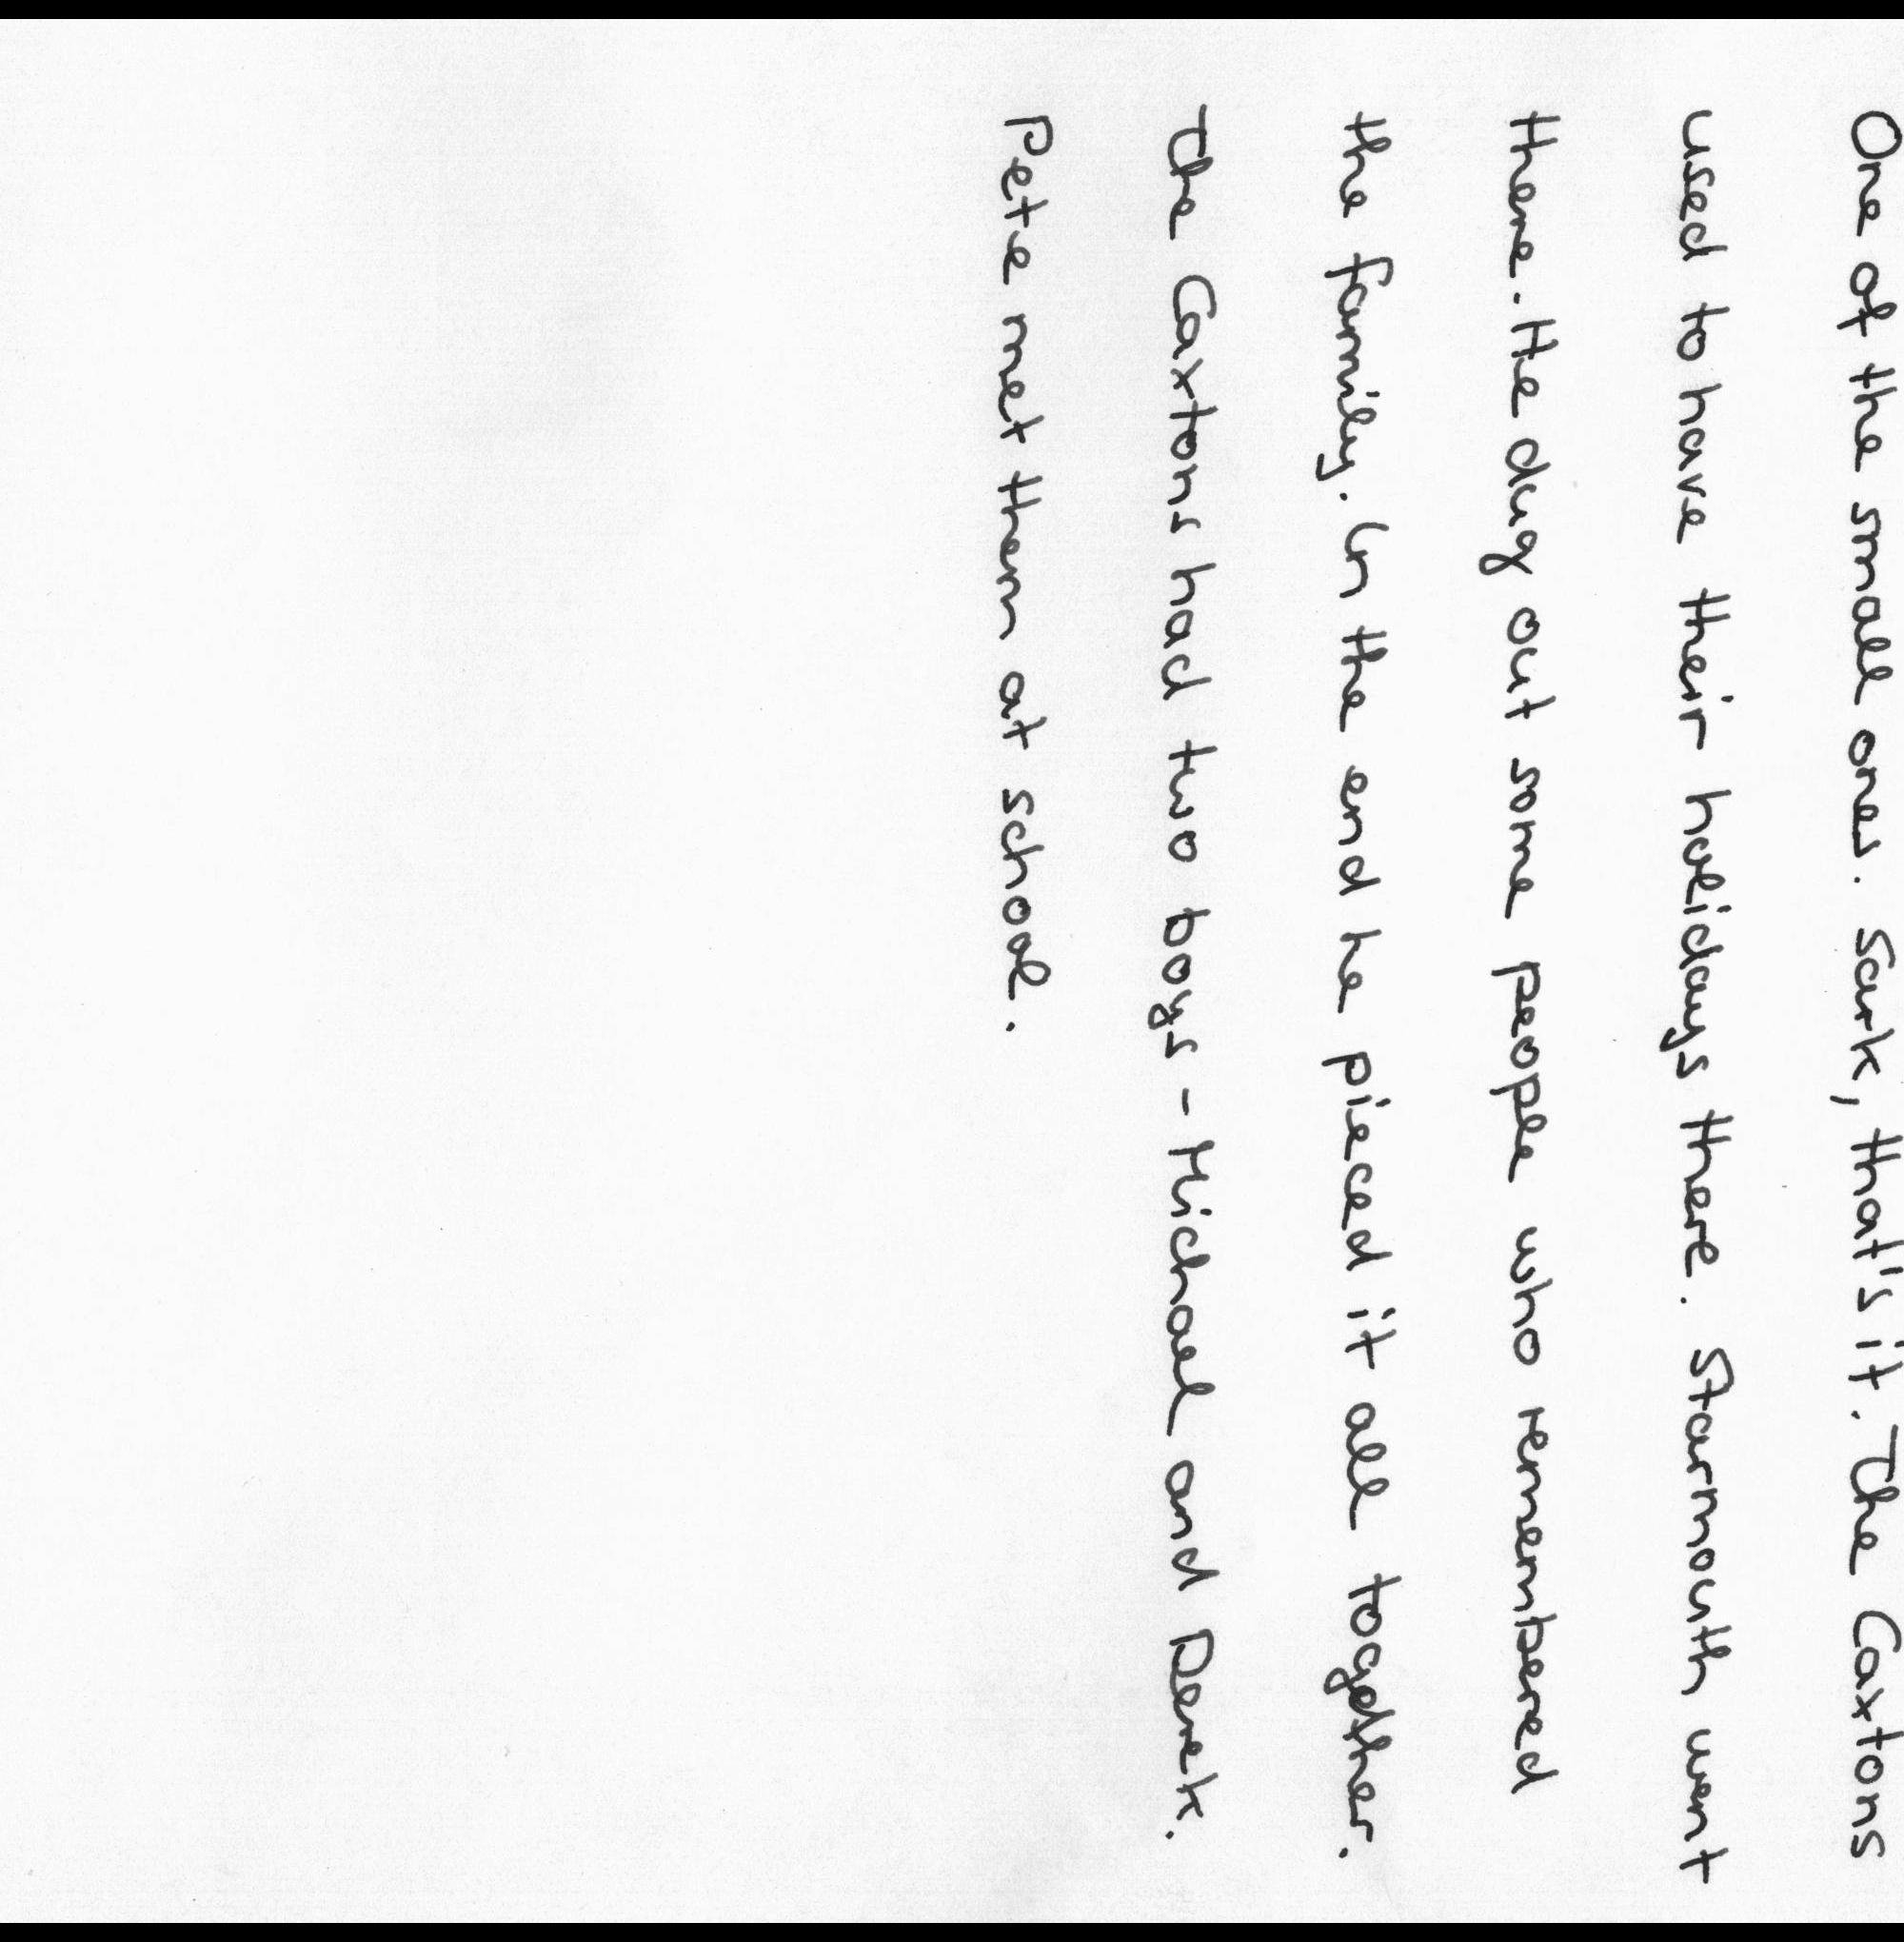 One of the small ones. Sark, that's it. The Caxtons
used to have their holidays there. Starmouth went
there. He dug out some people who remembered
the family. In the end he pieced it all together.
The Caxtons had two boys - Michael and Derek.
Pete met them at school.